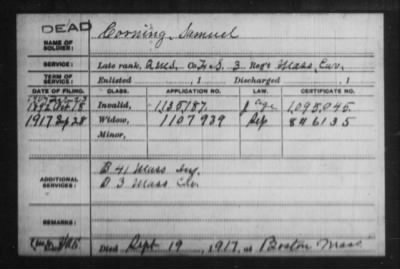 DEAD
NAME OF SOLDIER: Corning, Samuel
SERVICE: Late rank, Co. F.S. 3 Reg't Mass. Cav.
TERM OF SERVICE: Enlisted , 1 Discharged , 1
DATE OF FILING. CLASS. APPLICATION NO. LAW. CERTIFICATE NO.
1892 Invalid, 1135187. 1,095,045.
1917 Widow, 1107939 846135
Minor,
ADDITIONAL SERVICES: B 41 Mass Inf.
D 3 Mass Cav
REMARKS:
Died Sept 19, 1917, at Boston Mass